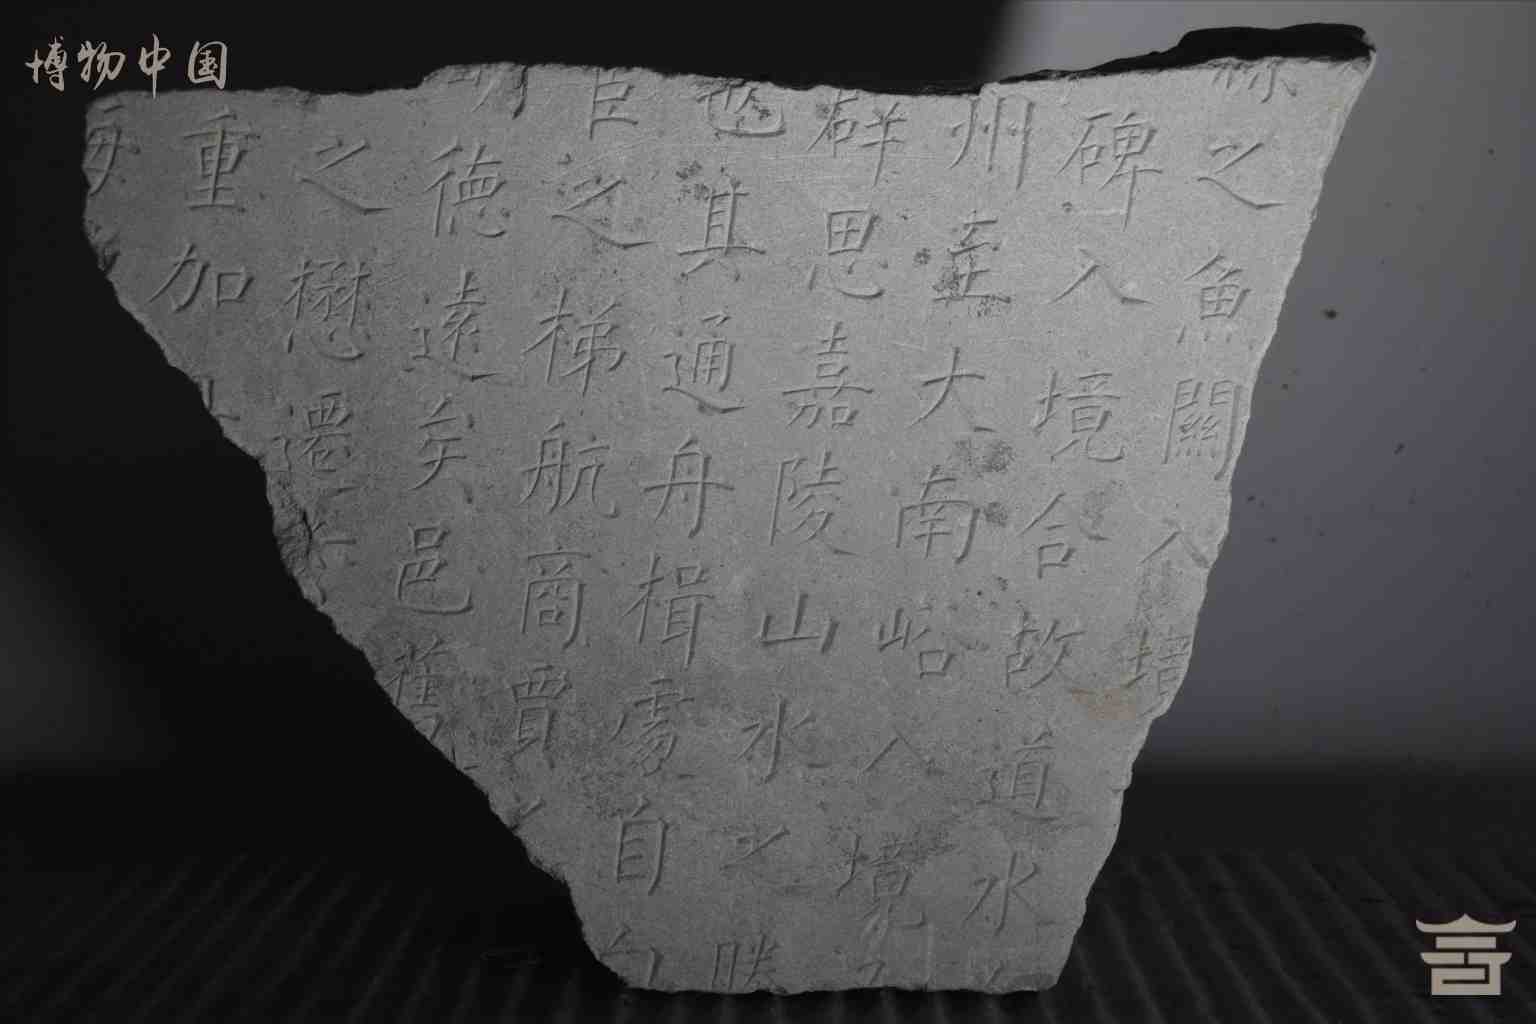 博物中国
之魚關入境
碑入境合故道水
州至大南峪入境
群思嘉陵山水之勝
也其通舟楫處自
臣之梯航商賈
德遠矣邑舊
之懋遷
重加
海